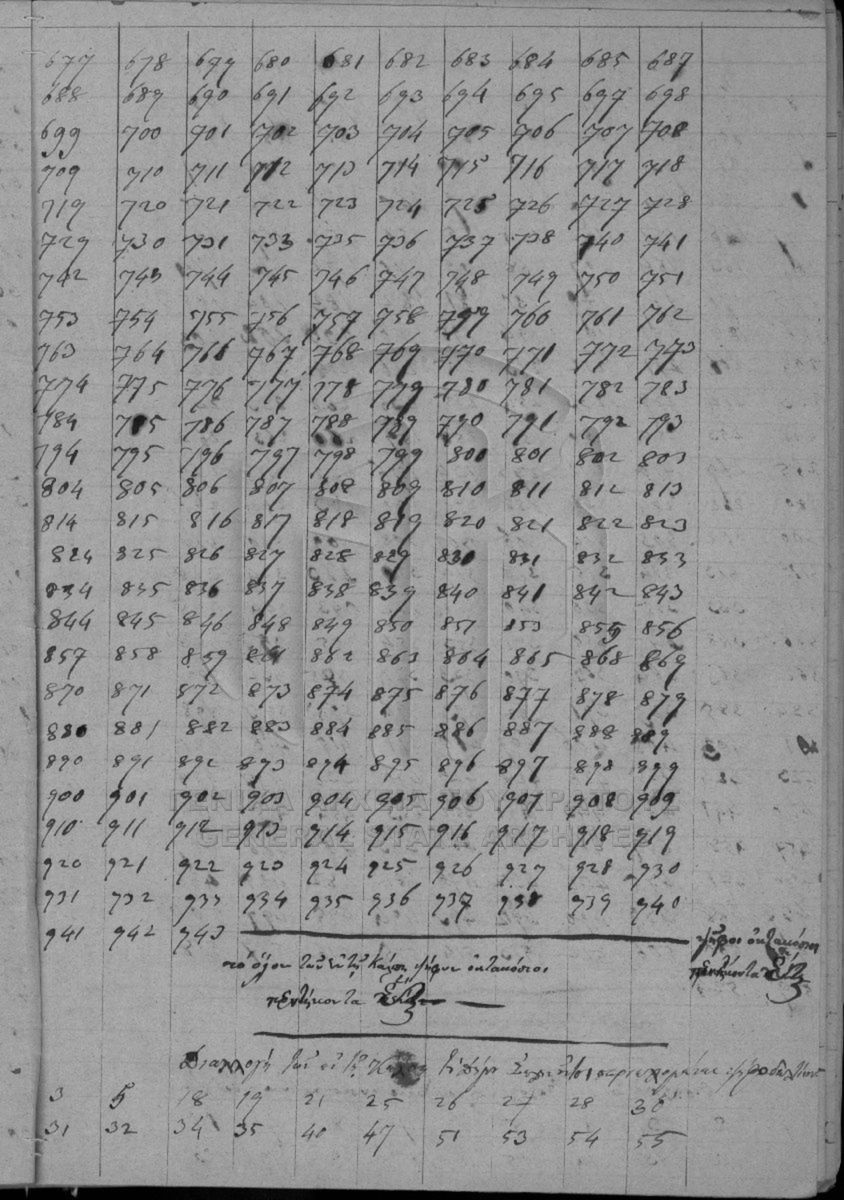 677 678 679 680 681 682 683 684 685 687
688 689 690 691 692 693 694 695 697 698
699 700 701 702 703 704 705 706 707 708
709 710 711 712 713 714 715 716 717 718
719 720 721 722 723 724 725 726 727 728
729 730 731 733 735 736 737 738 740 741
742 743 744 745 746 747 748 749 750 751
753 754 755 756 757 758 759 760 761 762
763 764 766 767 768 769 770 771 772 773
774 775 776 777 778 779 780 781 782 783
784 785 786 787 788 789 790 791 792 793
794 795 796 797 798 799 800 801 802 803
804 805 806 807 808 809 810 811 812 813
814 815 816 817 818 819 820 821 822 823
824 825 826 827 828 829 830 831 832 833
834 835 836 837 838 839 840 841 842 843
844 845 846 848 849 850 851 853 855 856
857 858 859 861 862 863 864 865 868 869
870 871 872 873 874 875 876 877 878 879
880 881 882 883 884 885 886 887 888 889
890 891 892 893 894 895 896 897 898 899
900 901 902 903 904 905 906 907 908 909
ΓΕΝΙΚΑ ΑΡΧΕΙΑ ΤΟΥ ΚΡΑΤΟΥΣ
910 911 912 913 914 915 916 917 918 919
GENERAL STATE ARCHIVES
920 921 922 923 924 925 926 927 928 930
931 932 933 934 935 936 937 938 939 940
941 942 943
ψῆφοι ὀκτακόσιοι
τὸ ὅλον τῶν ἐν τῇ κάλπῃ ψήφων ὀκτακόσιοι
πεντήκοντα
πεντήκοντα
Διαλογὴ τῶν
3 5 18 19 21 25 26 27 28 30
31 32 34 35 40 47 51 53 54 55